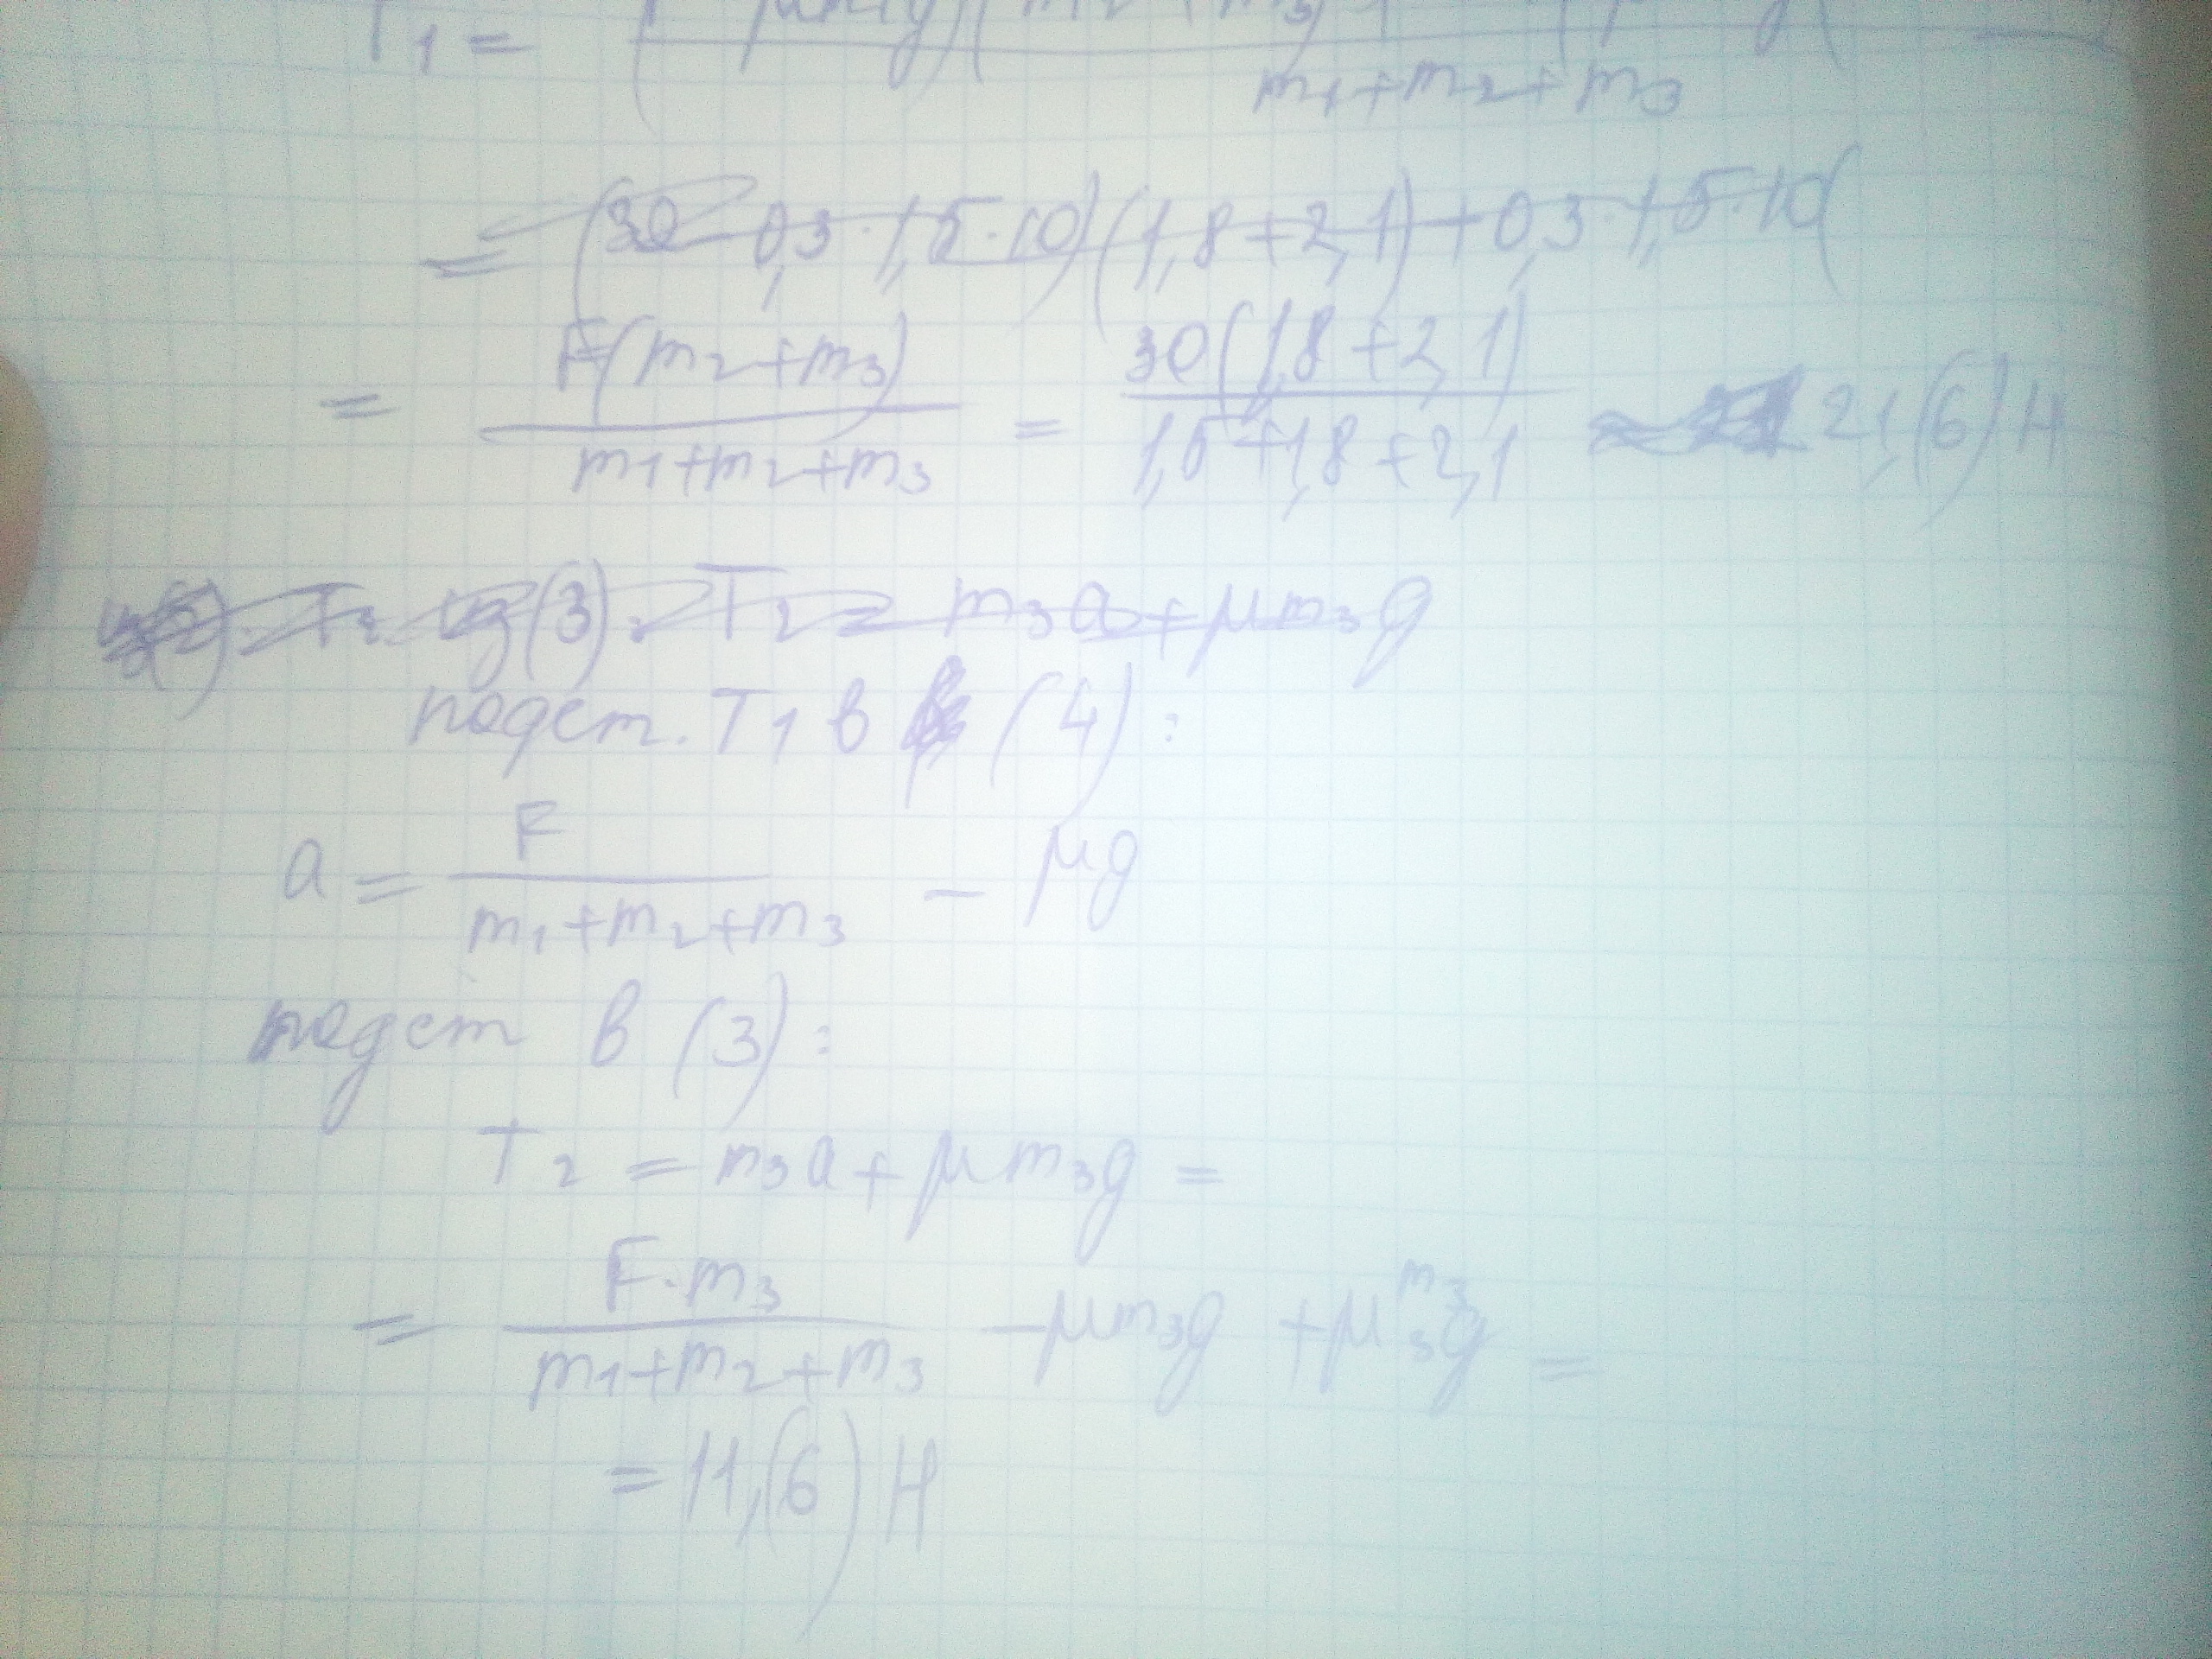 T₁ =
m₁+m₂+m₃
= (30 - 0,3·1,5·10)(1,8+2,1)+0,3·1,5·10(
= F(m₂+m₃) / m₁+m₂+m₃ = 30(1,8+2,1) / 1,5+1,8+2,1 21,(6) Н
из (3): T₂ = m₃a+μm₃g
подст. T₁ в (4):
a = F / m₁+m₂+m₃ - μg
подст в (3):
T₂ = m₃a+μm₃g =
= F·m₃ / m₁+m₂+m₃ -μm₃g +μm₃g =
= 11,(6) Н